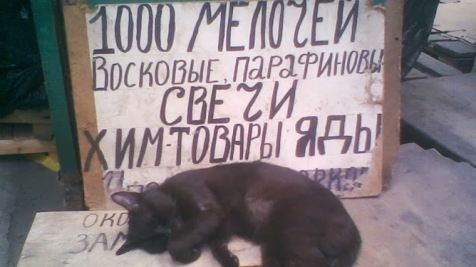 1000 МЕЛОЧЕЙ
ВОСКОВЫЕ, ПАРАФИНОВЫ
СВЕЧИ
ХИМ-ТОВАРЫ ЯДЫ
ЗАМ